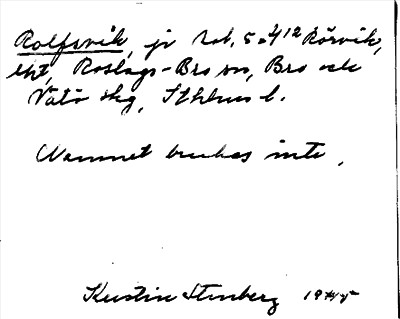 Rolfsvik, jr Nob. 5 o. 4¹² Rörvik,
lht, Roslags-Bro sn, Bro och
Vätö skg, Sthlms l.
Namnet brukas inte.
Kerstin Stenberg 1945